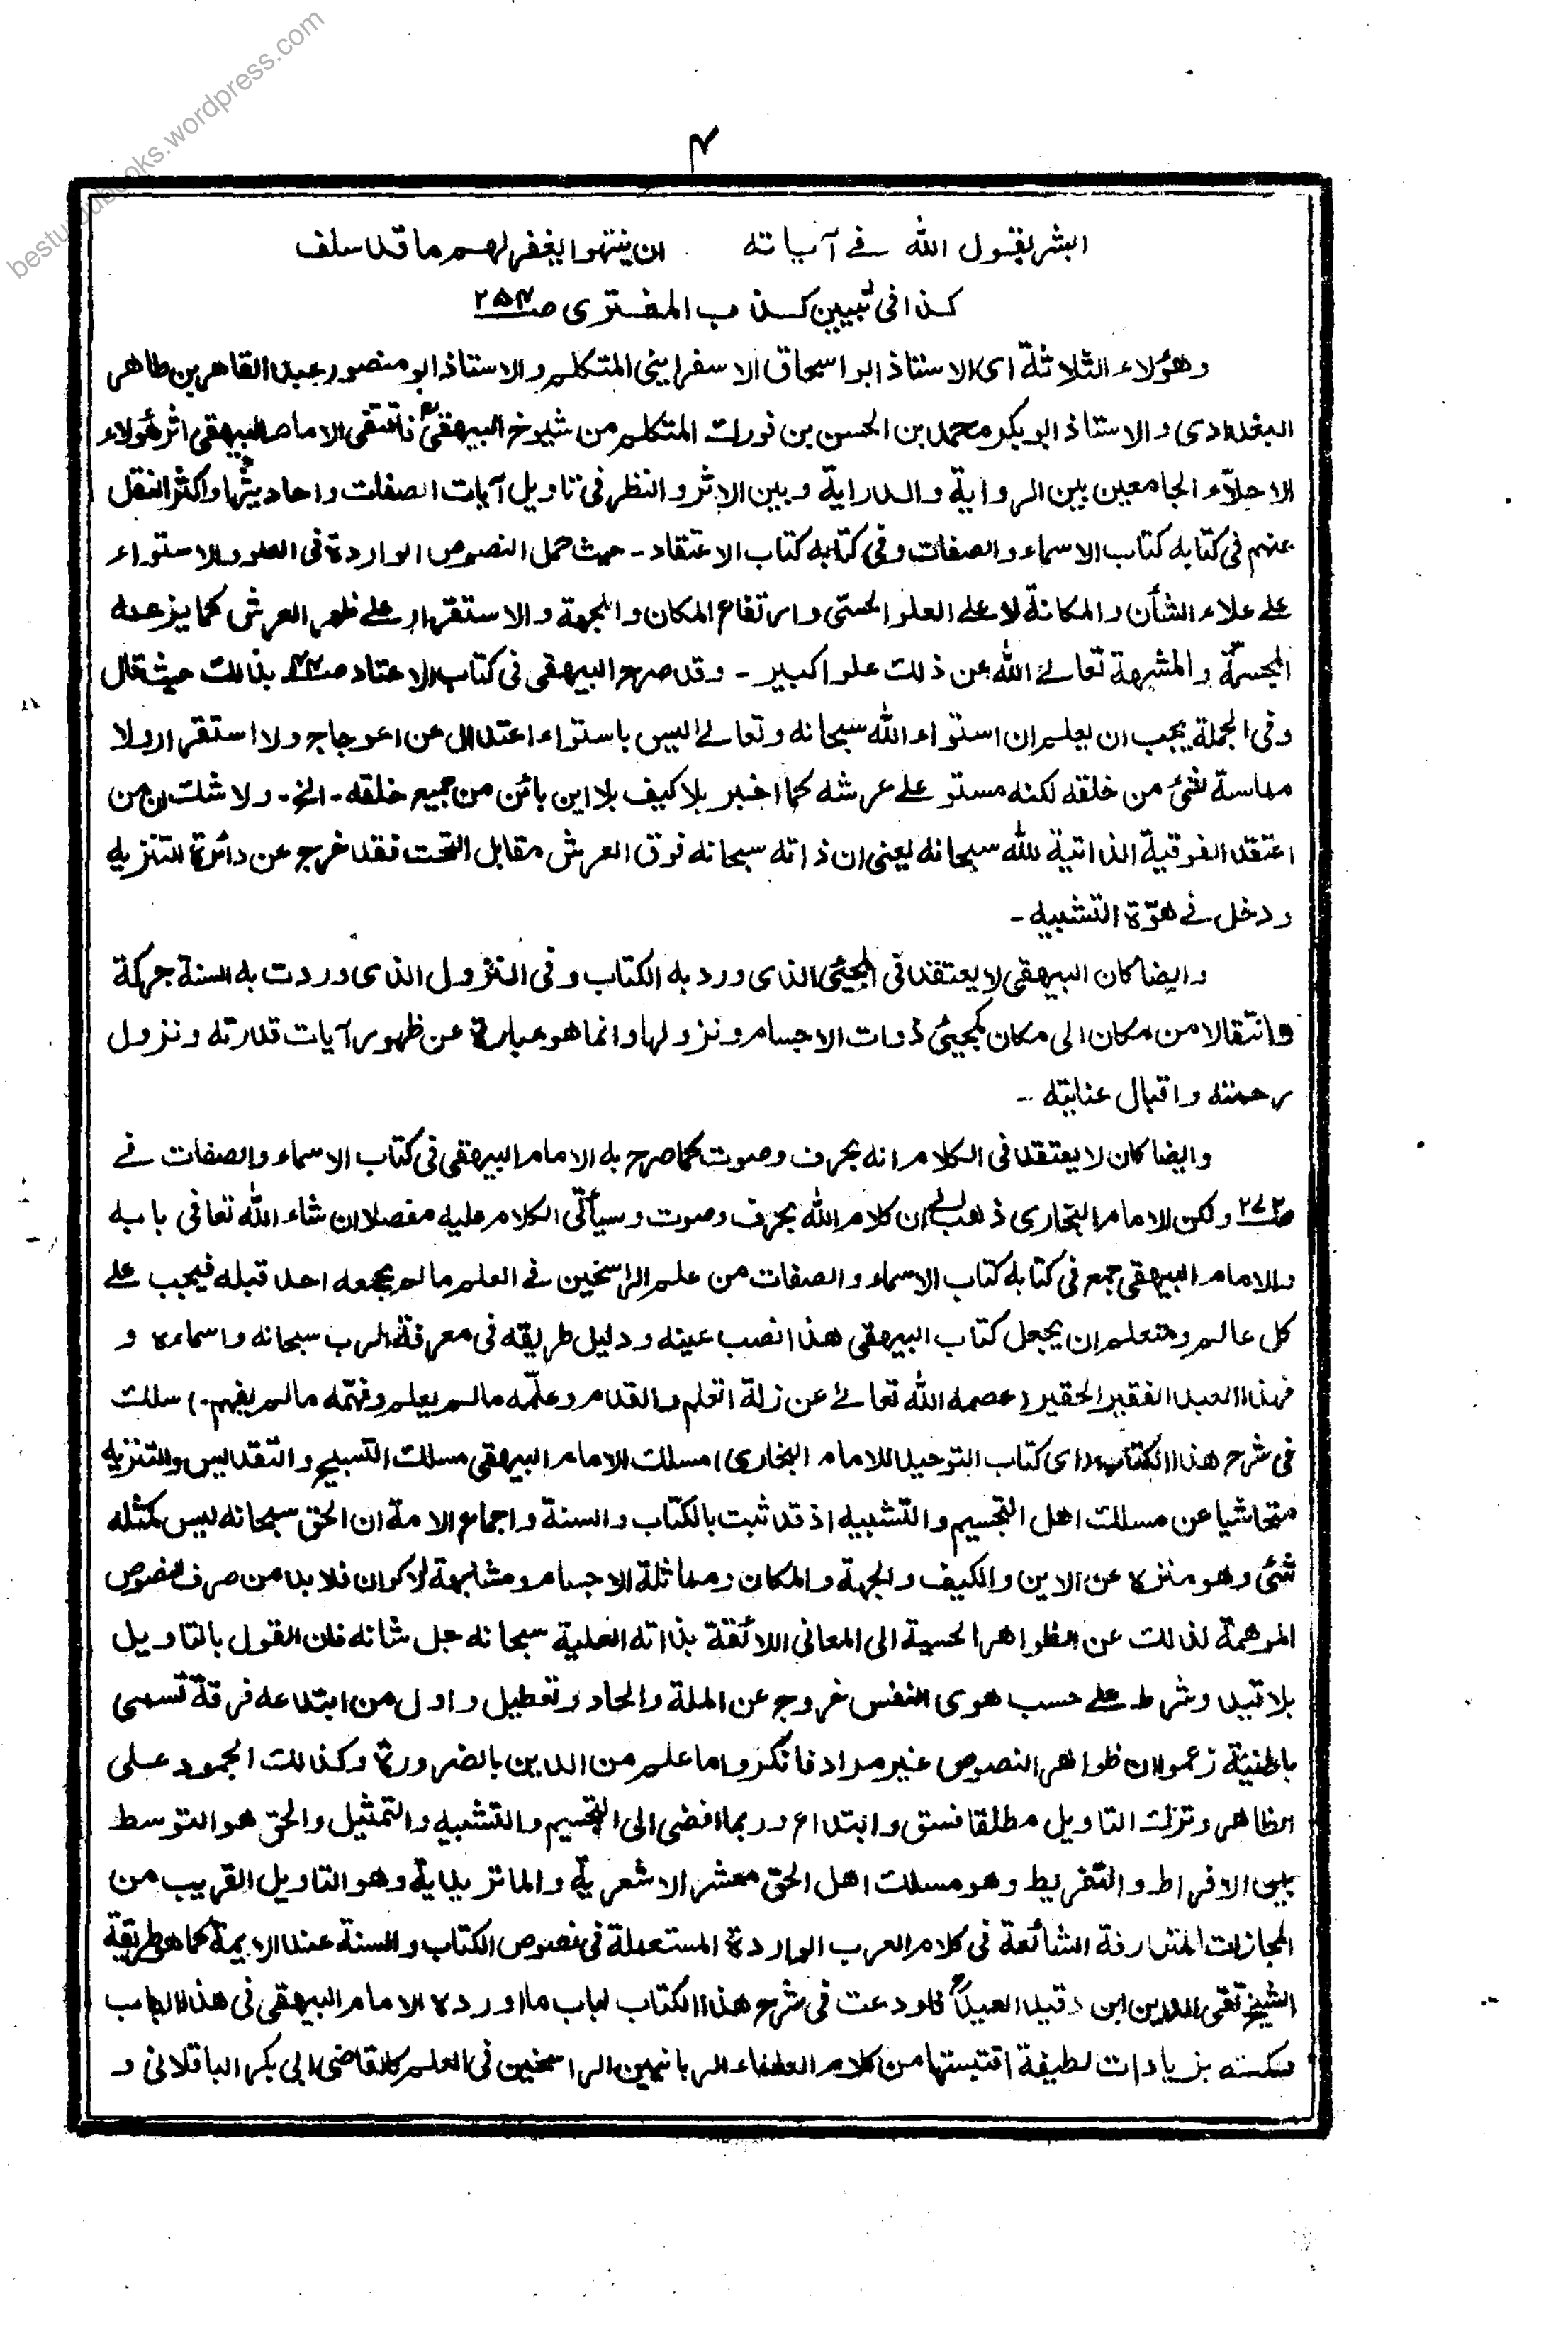 besturdubooks.wordpress.com
۴
ابشر بقول الله في آياته ان ينتهوا يغفر لهم ما قد سلف
كذا فى تبيين كذب المفترى ص۲۵۴
وهؤلاء الثلاثة اى الاستاذ ابو اسحاق الاسفراينى المتكلم والاستاذ ابو منصور عبد القاهر بن طاهر
البغدادى والاستاذ ابو بكر محمد بن الحسن بن فورك المتكلم من شيوخ البيهقىؒ فاقتفى الامام البيهقى اثر هؤلاء
الاجلاّء الجامعين بين الرواية والدراية وبين الاثر والنظر فى تاويل آيات الصفات واحاديثها واكثر النقل
عنهم فى كتابه كتاب الاسماء والصفات وفى كتابه كتاب الاعتقاد - حيث حمل النصوص الواردة فى العلو والاستواء
على علاء الشأن والمكانة لا على العلو الحسّى وارتفاع المكان والجهة والاستقرار على ظهر العرش كما يزعمه
المجسمّة والمشبهة تعالى الله عن ذلك علوا كبير - وقد صرح البيهقى فى كتاب الاعتقاد بذالك حيث قال
وفى الجملة يجب ان يعلم ان استواء الله سبحانه وتعالى ليس باستواء اعتدال عن اعوجاج ولا استقرار ولا
مماسة لشئ من خلقه لكنه مستو على عرشه كما اخبر بلا كيف بلا اين بائن من جميع خلقه - الخ - ولا شك ان من
اعتقد الفوقية الذاتية لله سبحانه يعنى ان ذاته سبحانه فوق العرش مقابل التحت فقد خرج عن دائرة التنزيه
ودخل في هوّة التشبيه -
وايضا كان البيهقى لا يعتقد فى المجيئ الذى ورد به الكتاب وفى النزول الذى وردت به السنة حركة
وانتقالا من مكان الى مكان كمجيئ ذوات الاجسام ونزولها وانما هو عبارة عن ظهور آيات قدرته ونزول
رحمته واقبال عنايته -
وايضا كان لا يعتقد فى الكلام انه بحرف وصوت كما صرح به الامام البيهقى فى كتاب الاسماء والصفات في
ص۲۷۲ ولكن الامام البخارى ذهب الى ان كلام الله بحرف وصوت وسيأتى الكلام عليه مفصلا ان شاء الله تعا فى بابه
والامام البيهقى جمع فى كتابه كتاب الاسماء والصفات من علم الراسخين في العلم ما لم يجمعه احد قبله فيجب على
كل عالم ومتعلم ان يجعل كتاب البيهقى هذا نصب عينه ودليل طريقه فى معرفة الرب سبحانه واسماءه و
فهذا العبد الفقير الحقير (عصمه الله تعالى عن زلة القلم والقدم وعلّمه ما لم يعلم وفهّمه ما لم يفهم.) سلك
فى شرح هذا الكتاب (اى كتاب التوحيد للامام البخارى) مسلك الامام البيهقى مسلك التسبيح والتقديس والتنزيه
متحاشيا عن مسلك اهل التجسيم والتشبيه اذ قد ثبت بالكتاب والسنة واجماع الامة ان الحق سبحانه ليس كمثله
شئ وهو منزه عن الاين والكيف والجهة والمكان ومماثلة الاجسام ومشابهة الاكوان فلا بد من صرف النصوص
الموهمة لذالك عن الظواهر الحسية الى المعانى اللائقة بذاته العلية سبحانه جل شانه فان القول بالتاويل
بلا قيد وشرط على حسب هوى النفس خروج عن الملة والحاد وتعطيل واول من ابتدعه فرقة تسمى
باطنية زعموا ان ظواهر النصوص غير مراد فانكروا ما علم من الدين بالضرورة وكذالك الجمود على
الظاهر وترك التاويل مطلقا فسق وابتداع وربما افضى الى التجسيم والتشبيه والتمثيل والحق هو التوسط
بين الافراط والتفريط وهو مسلك اهل الحق معشر الاشعرية والماتريدية وهو التاويل القريب من
المجازات المتعارفة الشائعة فى كلام العرب الواردة المستعملة فى نصوص الكتاب والسنة عند الايمة كما هو طريقة
الشيخ تقى الدين ابن دقيق العيدؒ فاودعت فى شرح هذا الكتاب لباب ما اورده الامام البيهقى فى هذا الباب
بزيادات لطيفة اقتبستها من كلام العلماء الربانيين الراسخين فى العلم كالقاضى ابى بكر الباقلانى و